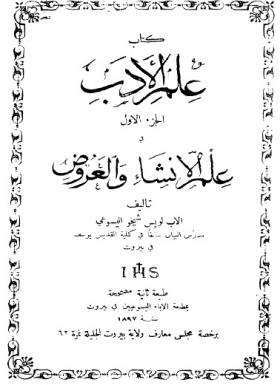 كتاب
علم الأدب
الجزء الاول
في
علم الانشاء والعروض
تأليف
الاب لويس شيخو اليسوعي
مدرس البيان سابقاً في كلية القديس يوسف
في بيروت
IHS
طبعة ثانية مصححة
بمطبعة الآباء اليسوعيين في بيروت
سنة ١٨٩٧
برخصة مجلس معارف ولاية بيروت الجليلة نمرة ٦٢